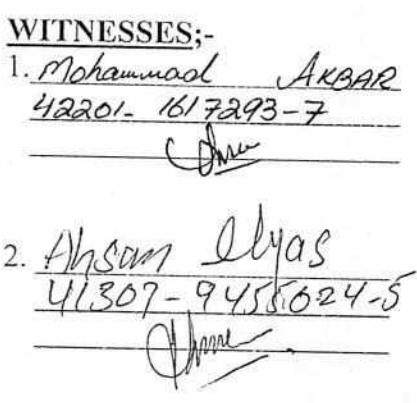 WITNESSES;-
1. Mohammad AKBAR
42201-1617293-7
2. Ahsan Ilyas
41307-9455624-5